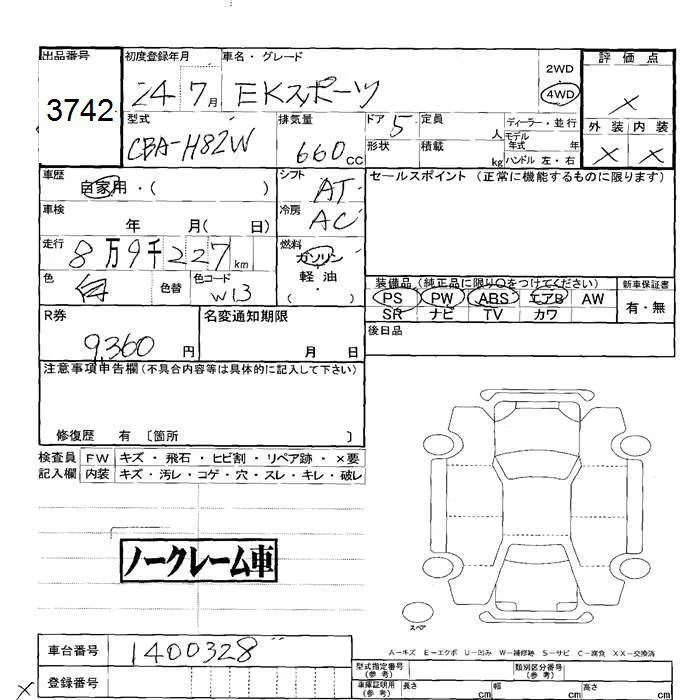 出品番号
3742
初度登録年月
24 7月
車名・グレード
EKスポーツ
2WD
4WD
評価点
×
外装 内装
× ×
型式
CBA-H82W
排気量
660cc
ドア 5
形状
定員 人
積載 kg
ディーラー・並行
モデル年式 年
ハンドル 左・右
車歴
自家用・( )
シフト
AT
セールスポイント (正常に機能するものに限ります)
車検
年 月( 日)
冷房
AC
走行
8万9千227km
燃料
ガソリン
軽油
( ・ )
色
白
色替
色コード
W13
装備品(純正品に限り○をつけてください)
PS PW ABS エアB AW
SR ナビ TV カワ
新車保証書
有・無
R券
9,360円
名変通知期限
月 日
後日品
注意事項申告欄(不具合内容等は具体的に記入して下さい)
修復歴 有 〔箇所 〕
検査員 FW キズ・飛石・ヒビ割・リペア跡・×要
記入欄 内装 キズ・汚レ・コゲ・穴・スレ・キレ・破レ
ノークレーム車
スペア
車台番号
1400328
A−キズ E−エクボ U−凹み W−補修跡 S−サビ C−腐食 XX−交換済
登録番号
×
型式指定番号(参考)
類別区分番号(参考)
車庫証明用(参考) 長さ cm 幅 cm 高さ cm